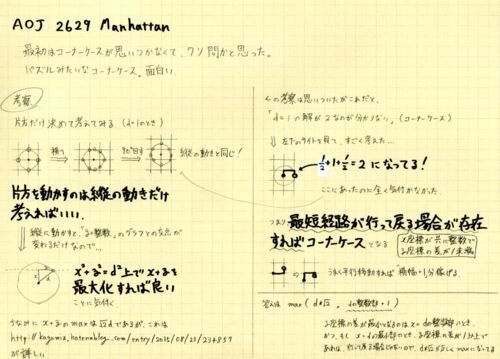 AOJ 2629 Manhattan
最初はコーナーケースが思いつかなくて、クソ問かと思った。
パズルみたいなコーナーケース。面白い。
考察
片方だけ決めて考えてみる (d=1のとき)
横へ
90°回す
縦の動きと同じ!
片方を動かすのは縦の動きだけ
考えればいい.
縦に動かすと、「yが整数」のグラフとの交点が
変わるだけなので…
x²+y²=d²上でx+yを
最大化すれば良い
ことに気付く
ちなみに x+yのmaxは√2dであるが、これは
が詳しい
←の考察は思いついたがこれだと、
「d=1の解が2なのが分からない」(コーナーケース)
左下のサイトを見て、すごく考えた…
1/2+1+1/2=2 になってる!
ここにあったのに全く気付かなかった
つまり 最短経路が行って戻る場合が存在
すればコーナーケース となる
x座標が共に整数で
y座標の差が1未満
うまく平行移動すれば「横幅+1」分稼げる。
答えは max(d√2, dの整数部+1)
y座標の差が最小になるのは x=dの整数部のとき。
かつ、もし x=dの最小部のとき、y座標の差が1以上で
あれば、行って戻る場合じゃないので、d√2が正しくmaxになってる